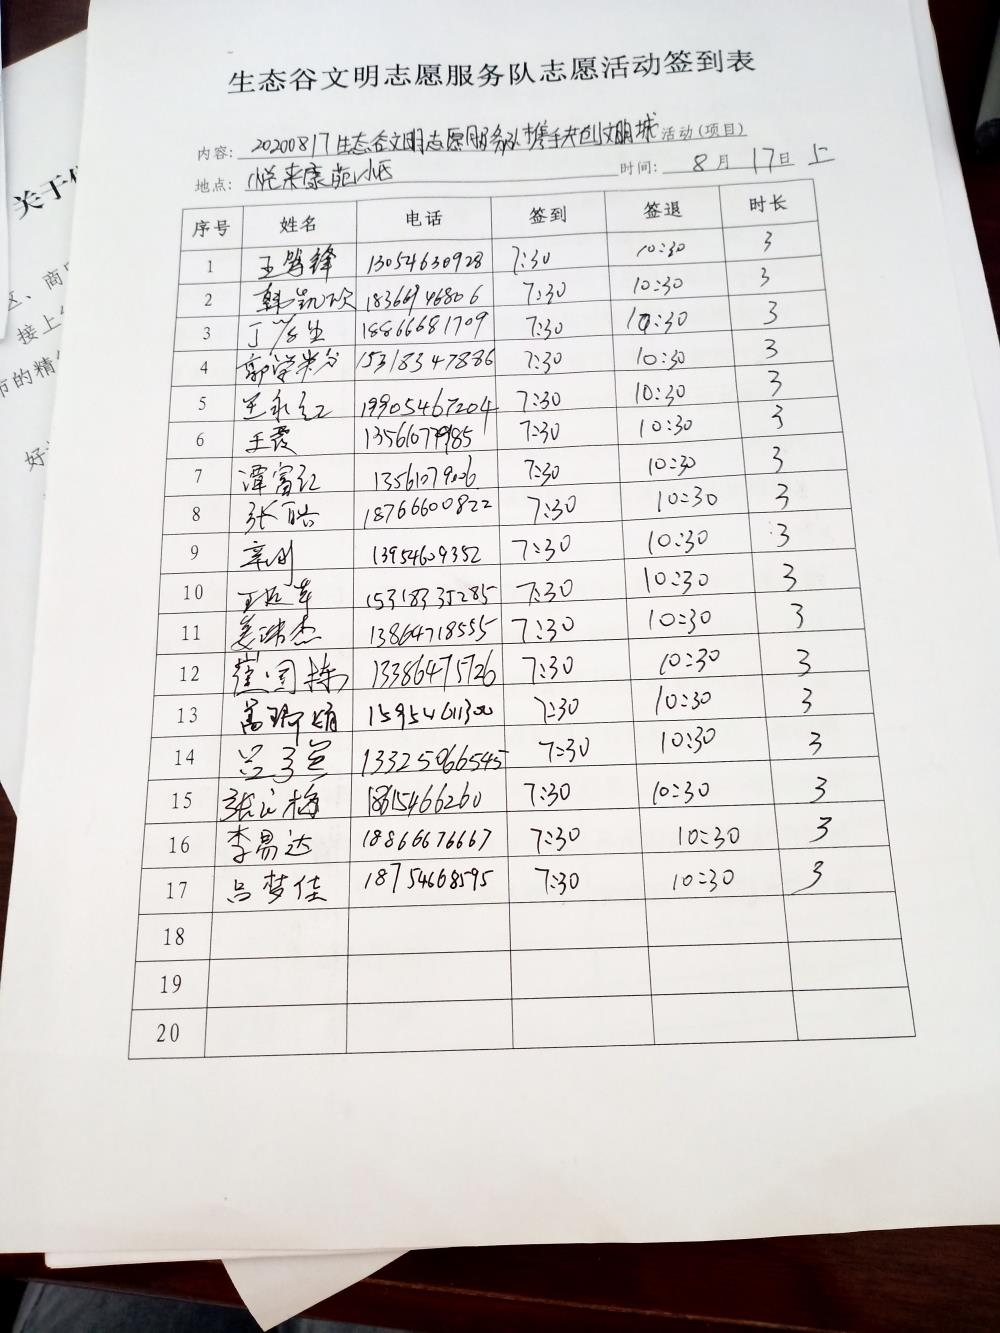 生态谷文明志愿服务队志愿活动签到表
内容: 20200817生态谷文明志愿服务队携手共创文明城 活动(项目)
地点: 悦来康苑小区 时间: 8月17日上
序号 姓名 电话 签到 签退 时长
1 13054630928 7:30 10:30 3
2 韩凯欣 7:30 10:30 3
3 18866681709 7:30 10:30 3
4 郭学芬 15318347886 7:30 10:30 3
5 王永红 19905467204 7:30 10:30 3
6 王霞 7:30 10:30 3
7 谭富红 7:30 10:30 3
8 张皓 18766600822 7:30 10:30 3
9 13954609352 7:30 10:30 3
10 15318335285 7:30 10:30 3
11 13864718555 7:30 10:30 3
12 13386475726 7:30 10:30 3
13 15954611300 7:30 10:30 3
14 13325066545 7:30 10:30 3
15 7:30 10:30 3
16 李易达 18866676667 7:30 10:30 3
17 吕梦佳 18754668595 7:30 10:30 3
18
19
20
关于
区、商
接上
市的精
好